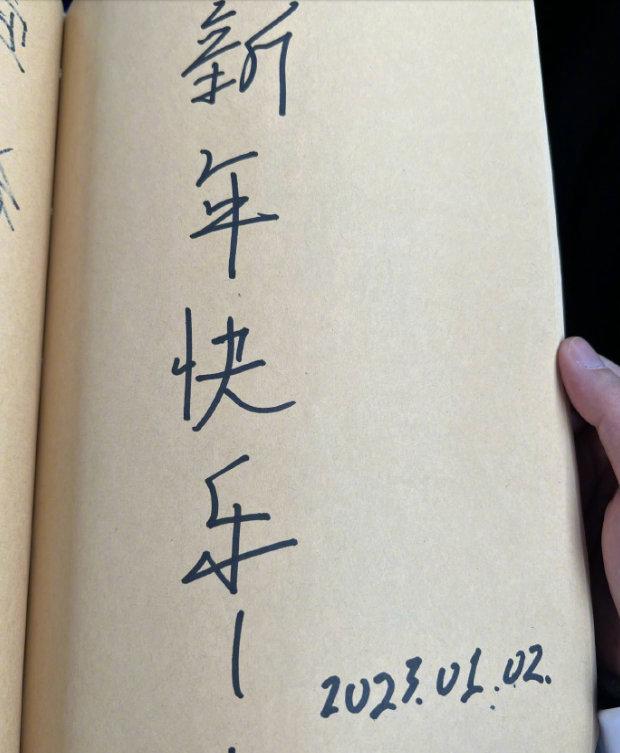 新年快乐!
2023.01.02.